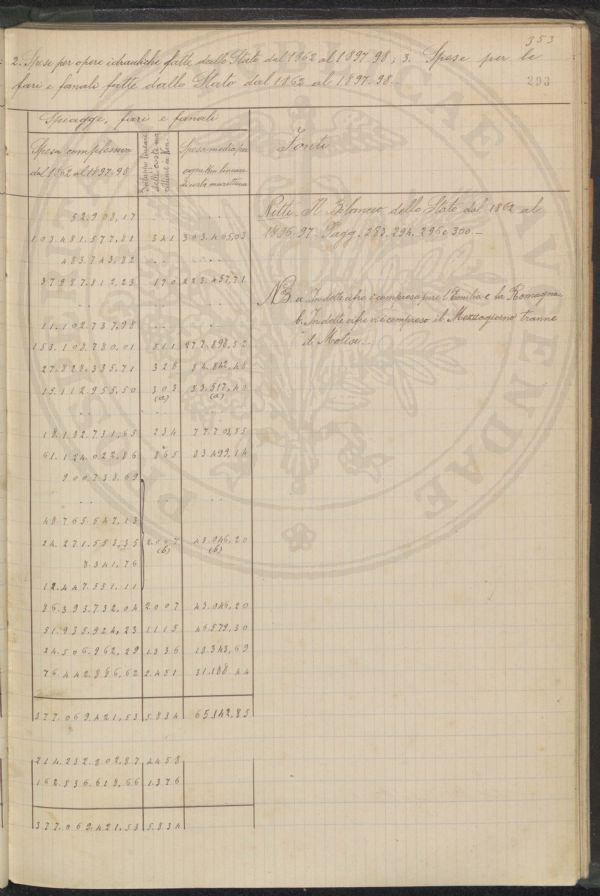 353
2. Spese per opere idrauliche fatte dallo Stato dal 1862 al 1897-98; 3. Spese per le
fari e fanali fatte dallo Stato dal 1862 al 1897-98.
293
Spiagge, fari e fanali
Spesa complessiva
dal 1862 al 1897-98
Sviluppo lineare
delle coste ma
rittime in Km.
Spesa media per
ogni Km lineare
di costa marittima
Fonti
52,908,17 . . .
103.481.577,81 341 303.405,03
483.743,82 . . .
37.987.812,23 170 223.457,71
. . . . .
11.102.737,98 . . .
153.108.780,01 511
27.828.335,71 328 84.842,48
15.112.955,50 303 (a) 33.517,40 (a)
. . . . .
18.182.731,65 234 77.703,55
61.124.022,86 865 83.499,14
900.738,69
. .
48.765.547,13
24.271.553,35 2.007 (b) 43.046,20 (b)
8.341,76
12.447.551,11
86.393.732,04 2007 43.046,20
51.935.924,23 1115 46.579,30
24.506.962,29 1336 18.343,69
76.442.886,62 2.451 31.188 44
377.069.421,53 5.834 65.142,85
214.232.802,87 4458
162.836.618,66 1.376
377.069.421.53 5834
Nitti. Il Bilancio dello Stato dal 1862 al
1896-97. Pagg. 283. 294. 296 e 300.—
NB. a. In dette cifre è compreso pure l'Emilia e la Romagna
b. In dette cifre vi è compreso il Mezzogiorno tranne
il Molise.